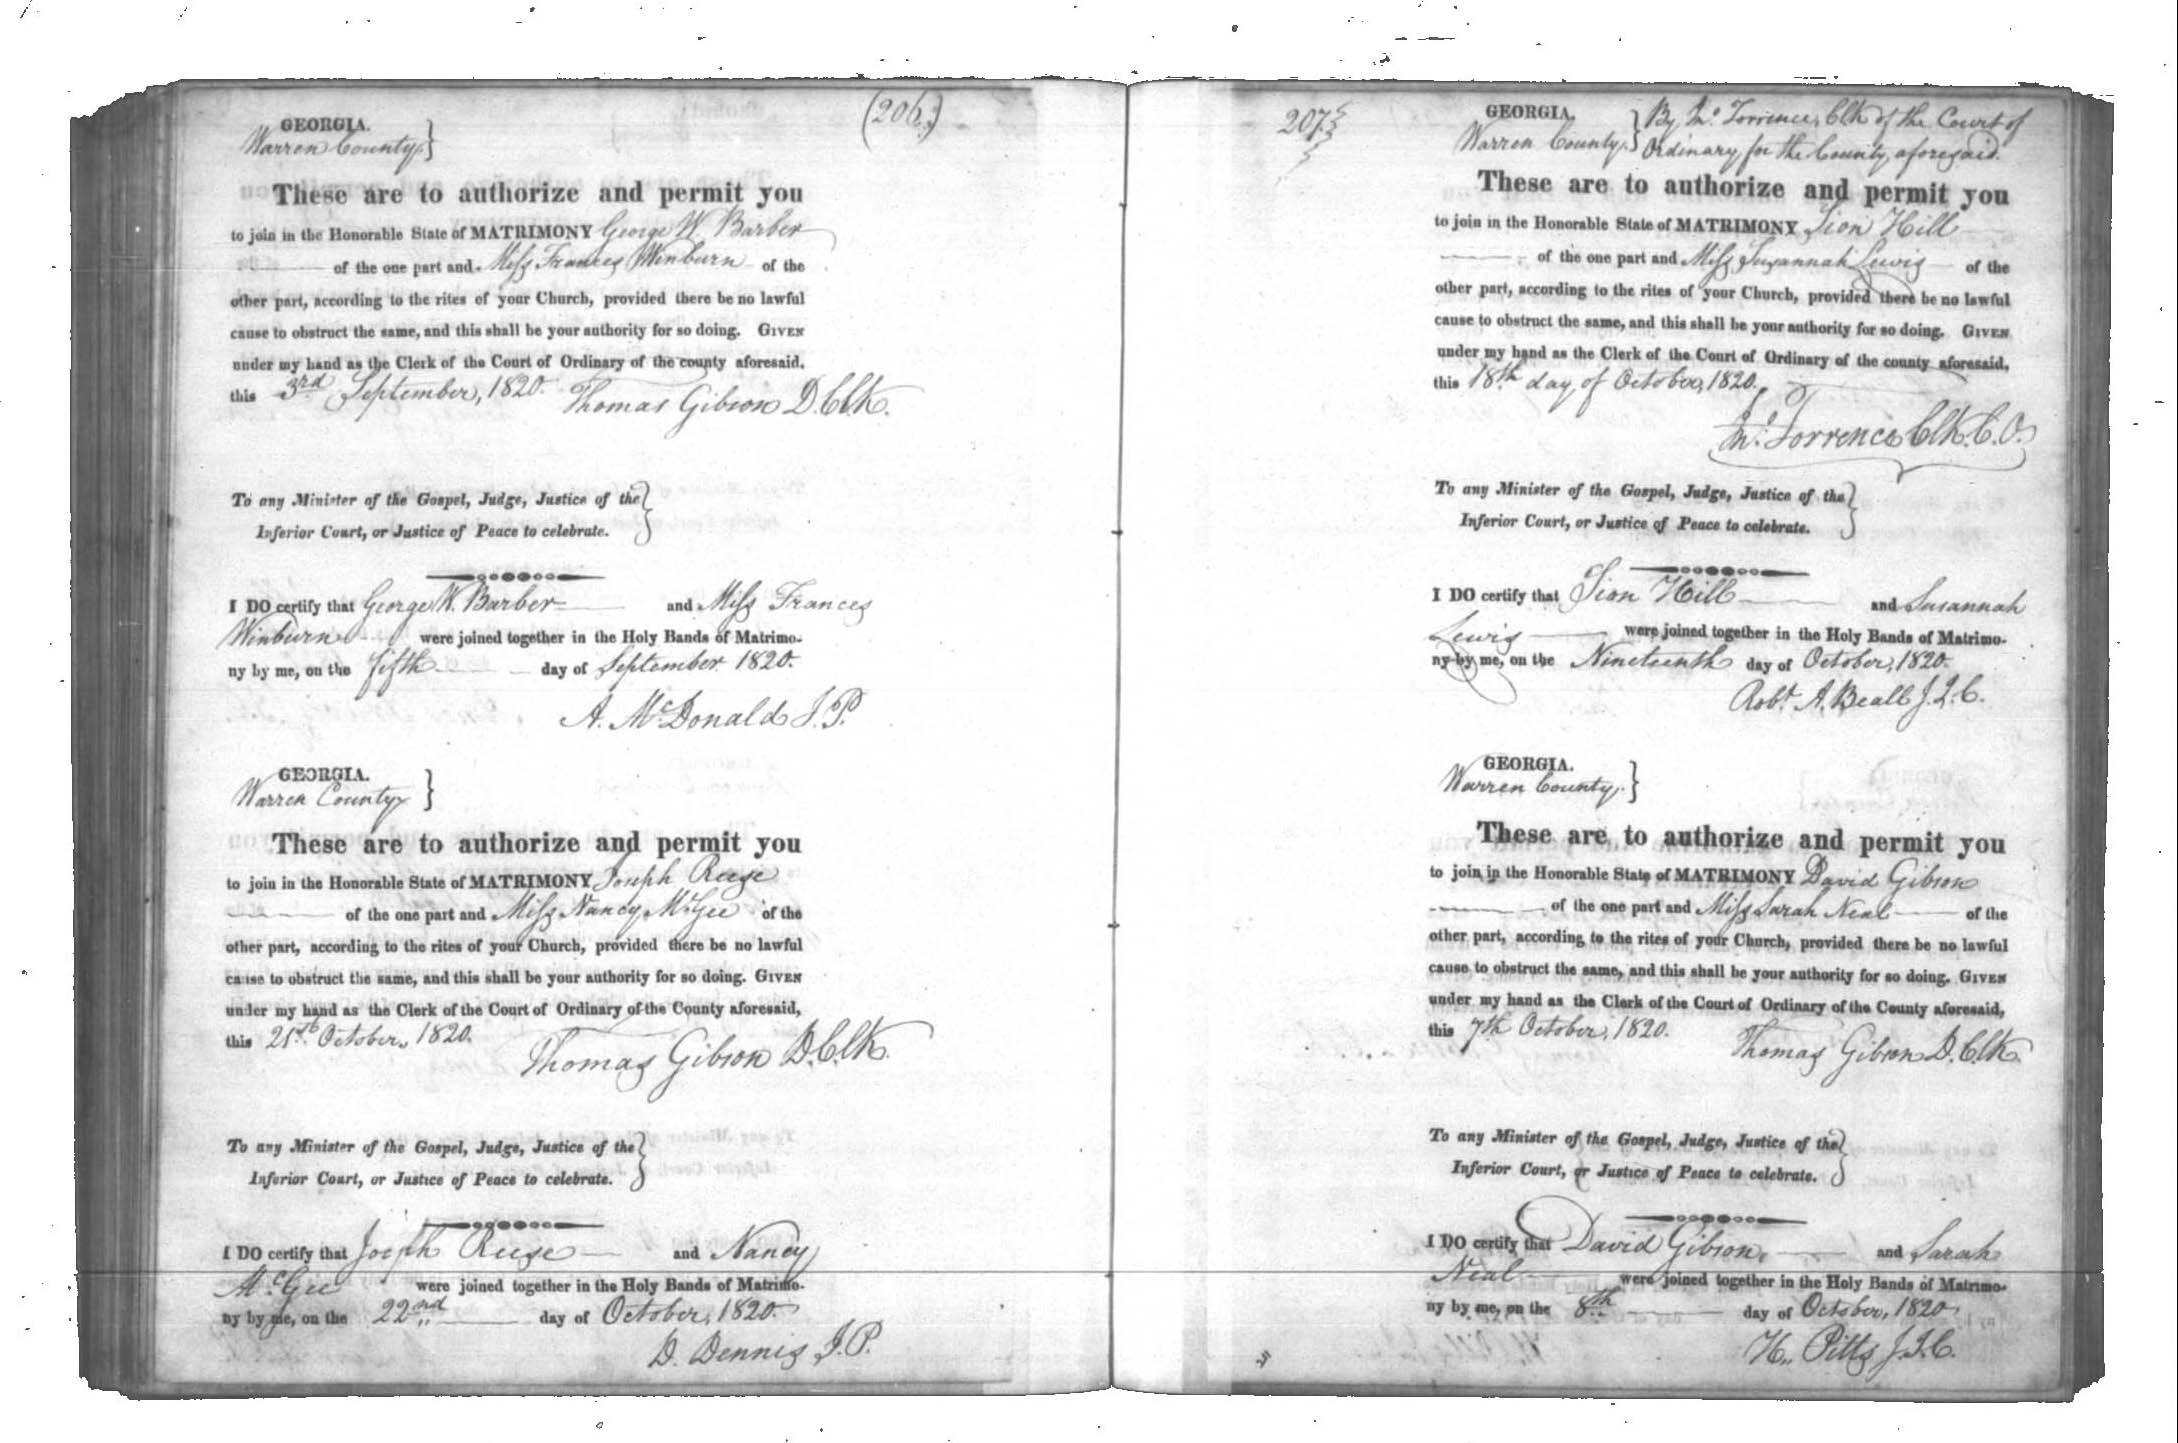 (206.)
GEORGIA.
Warren County }
These are to authorize and permit you
to join in the Honorable State of MATRIMONY George W. Barber
of the one part and Miss Frances Winburn of the
other part, according to the rites of your Church, provided there be no lawful
cause to obstruct the same, and this shall be your authority for so doing. GIVEN
under my hand as the Clerk of the Court of Ordinary of the county aforesaid,
this 3rd September, 1820. Thomas Gibson D. Clk.
To any Minister of the Gospel, Judge, Justice of the }
Inferior Court, or Justice of Peace to celebrate.
I DO certify that George W. Barber and Miss Frances
Winburn were joined together in the Holy Bands of Matrimo-
ny by me, on the fifth day of September 1820.
A. McDonald J.P.
GEORGIA.
Warren County }
These are to authorize and permit you
to join in the Honorable State of MATRIMONY Joseph Reese
of the one part and Miss Nancy McGee of the
other part, according to the rites of your Church, provided there be no lawful
cause to obstruct the same, and this shall be your authority for so doing. GIVEN
under my hand as the Clerk of the Court of Ordinary of the County aforesaid,
this 21st October, 1820.
Thomas Gibson D. Clk.
To any Minister of the Gospel, Judge, Justice of the }
Inferior Court, or Justice of Peace to celebrate.
I DO certify that Joseph Reese and Nancy
McGee were joined together in the Holy Bands of Matrimo-
ny by me, on the 22nd day of October, 1820.
D. Dennis J.P.
207.
GEORGIA. } By Mo. Torrence, Clk of the Court of
Warren County. } Ordinary for the County aforesaid.
These are to authorize and permit you
to join in the Honorable State of MATRIMONY Sion Hill
of the one part and Miss Susannah Lewis of the
other part, according to the rites of your Church, provided there be no lawful
cause to obstruct the same, and this shall be your authority for so doing. GIVEN
under my hand as the Clerk of the Court of Ordinary of the county aforesaid,
this 18th day of October, 1820.
Mo. Torrence Clk. C. O.
To any Minister of the Gospel, Judge, Justice of the }
Inferior Court, or Justice of Peace to celebrate.
I DO certify that Sion Hill and Susannah
Lewis were joined together in the Holy Bands of Matrimo-
ny by me, on the Nineteenth day of October, 1820.
Robt. A. Beall J.I.C.
GEORGIA.
Warren County. }
These are to authorize and permit you
to join in the Honorable State of MATRIMONY David Gibson
of the one part and Miss Sarah Neal of the
other part, according to the rites of your Church, provided there be no lawful
cause to obstruct the same, and this shall be your authority for so doing. GIVEN
under my hand as the Clerk of the Court of Ordinary of the County aforesaid,
this 7th October, 1820. Thomas Gibson D. Clk.
To any Minister of the Gospel, Judge, Justice of the }
Inferior Court, or Justice of Peace to celebrate.
I DO certify that David Gibson and Sarah
Neal were joined together in the Holy Bands of Matrimo-
ny by me, on the 8th day of October, 1820.
H. Pitts J.I.C.